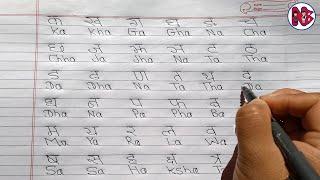 क ख ग घ ङ च
Ka Kha Ga Gha Na Cha
छ ज झ ञ ट ठ
Chha Ja Jha Na Ta Tha
ड ढ ण त थ द
Da Dha Na Ta Tha Da
ध न प फ ब
Dha Na Pa Pha Ba
म य र ल व
Ma Ya Ra La Wa
ष स ह क्ष त्र
Sa Sa Ha Ksha